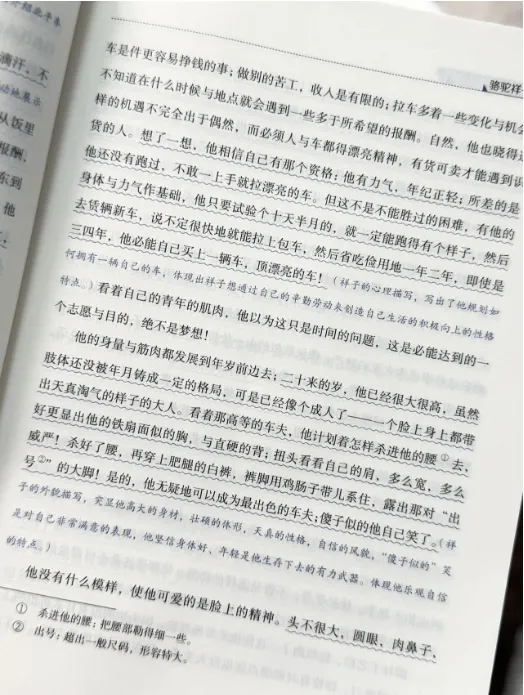 骆驼祥
车是件更容易挣钱的事；做别的苦工，收人是有限的；拉车多着一些变化与机
不知道在什么时候与地点就会遇到一些多于所希望的报酬。自然，他也晓得
样的机遇不完全出于偶然，而必须人与车都得漂亮精神，有货可卖才能遇到识
货的人。想了一想，他相信自己有那个资格：他有力气，年纪正轻；所差的是
他还没有跑过，不敢一上手就拉漂亮的车。但这不是不能胜过的困难，有他的
身体与力气作基础，他只要试验个十天半月的，就一定能跑得有个样子，然后
去赁辆新车，说不定很快地就能拉上包车，然后省吃俭用地一年二年，即使是
三四年，他必能自己买上一辆车，顶漂亮的车！（祥子的心理描写，写出了他规划如
何拥有一辆自己的车，体现出祥子想通过自己的辛勤劳动来创造自己生活的积极向上的性格
特点。）看着自己的青年的肌肉，他以为这只是时间的问题，这是必能达到的一
个志愿与目的，绝不是梦想！
他的身量与筋肉都发展到年岁前边去；二十来的岁，他已经很大很高，虽然
肢体还没被年月铸成一定的格局，可是已经像个成人了——一个脸上身上都带
出天真淘气的样子的大人。看着那高等的车夫，他计划着怎样杀进他的腰①去，
好更显出他的铁扇面似的胸，与直硬的背；扭头看看自己的肩，多么宽，多么
威严！杀好了腰，再穿上肥腿的白裤，裤脚用鸡肠子带儿系住，露出那对“出
号②”的大脚！是的，他无疑地可以成为最出色的车夫；傻子似的他自己笑了。（祥
子的外貌描写，突显他高大的身材，壮硕的体形，天真的性格，自信的风貌，“傻子似的”笑
是对自己非常满意的表现，他坚信身体好、年轻是他生存下去的有力武器。体现他乐观自信
的特点。）
他没有什么模样，使他可爱的是脸上的精神。头不很大，圆眼，肉鼻子，
① 杀进他的腰：把腰部勒得细一些。
② 出号：超出一般尺码，形容特大。
滴汗，不
动地展示
从饭里
报酬，
东到
他